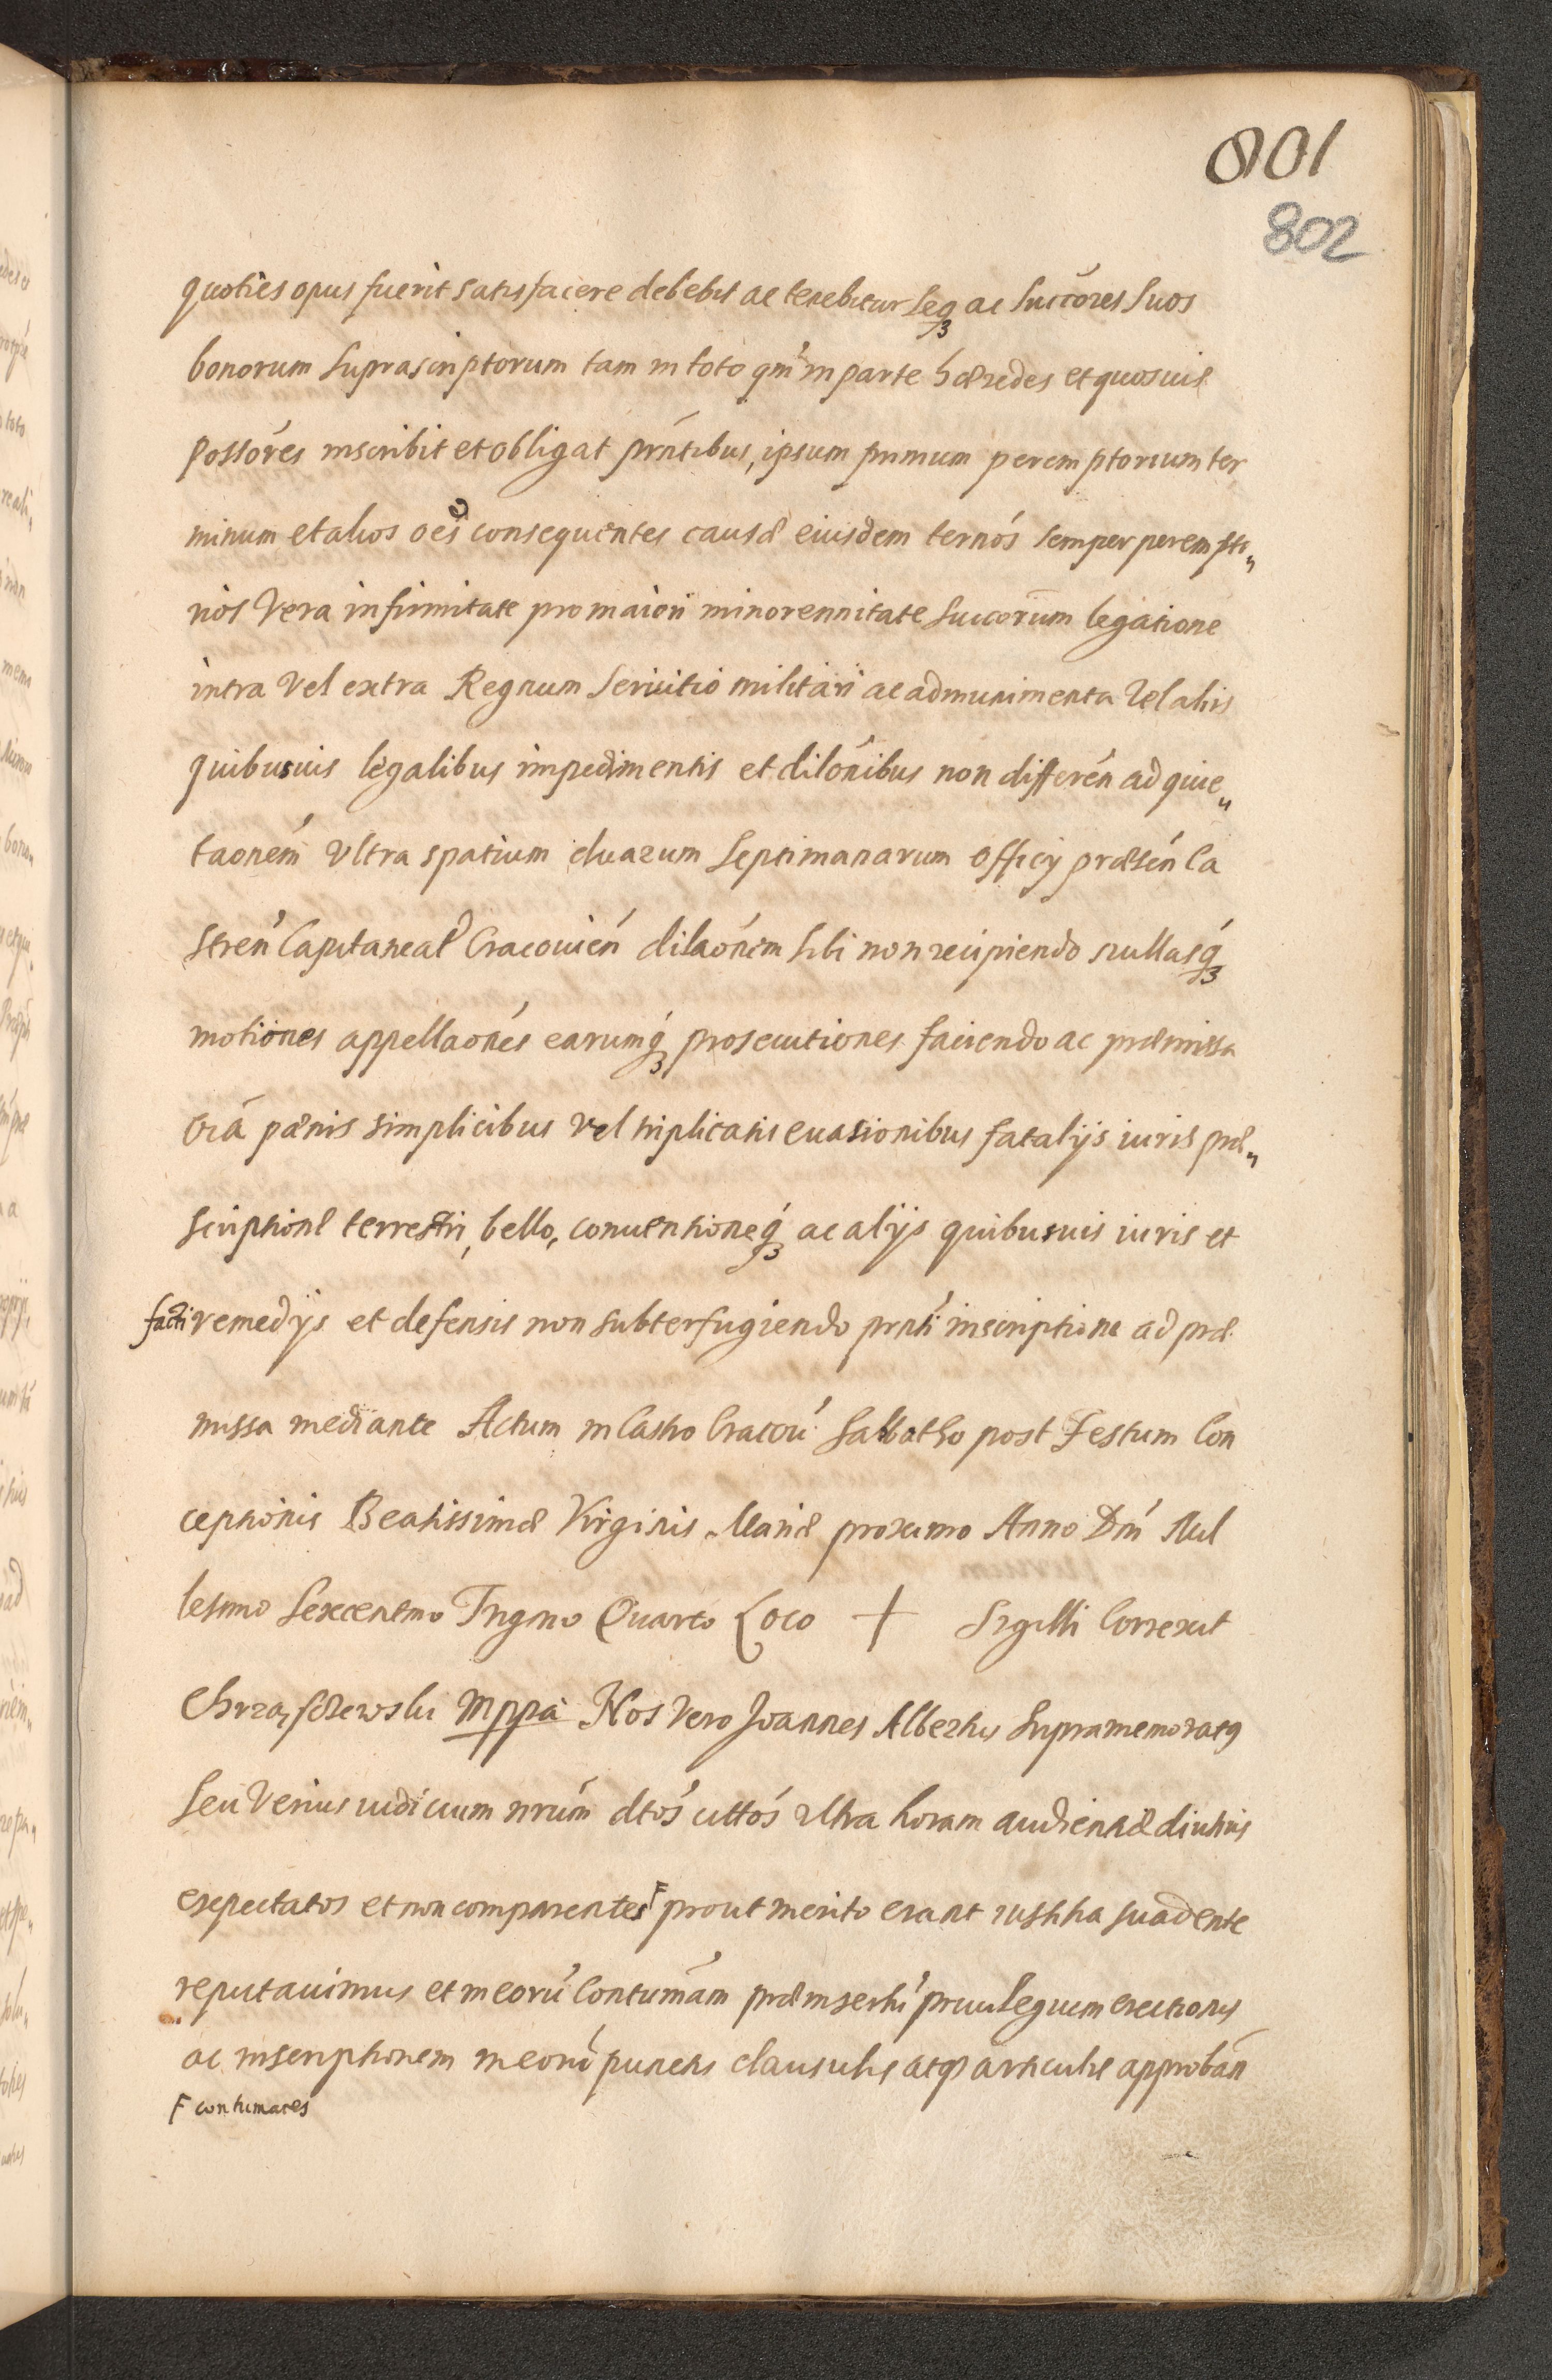 801
802
quoties opus fuerit satisfacere debebit ac tenebitur Seq3 ac Succóres Suos
bonorum Suprascriptorum tam in toto qm̃ in parte hæredes et quosuis
Possóres inscribit et obligat prńtibus, ipsum primum peremptorium ter,
minum et alios oẽs consequentes causæ eiusdem ternós semper perempto„
rios Vera infirmitate pro maiori minorennitate Succorum legatione
intra Vel extra Regnum Seruitio militari ac ad munimenta Vel aliis
quibusuis legalibus impedimentis et dilónibus non differén ad quie„
taoném Vltra spatium duarum Septimanarum Officij præsén Ca
stren̕ Capitaneal Cracouién dilaónem sibi non recipiendo nullasq́3
motiones appellaonés earumq́3 prosecutiones faciendo ac præmissa
oı̃a pænis simplicibus vel triplicatis euasionibus fatalijs iuris præ„
scriptione terrestri, bello, conuentioneq́3 ac alijs quibusuis iuris et
facti remedijs et defensis non subterfugiendo prńti inscriptione ad præ
missa mediante Actum in Castro Cracou̕ Sabbatho post Festum Con
ceptionis Beatissimæ Virginis Mariæ proximo Anno Dńi Mil
lesimo Sexcentmo Trigmo Quarto Loco + Sigilli Correxit
Chrząszczewski mppa Nos Vero Joannes Albertus Supramemorat9
Seu Verius iudicium nrúm dtós cittós Vltra horam audientiæ diutius
expectatos et non comparentes F prout merito erant iustitia suadente
reputauimus et in eorú Contumám præinserti priuilegium erectionis
ac inscriptionem in eorú punctis clausulis atq3 articulis approbán
F contumaces